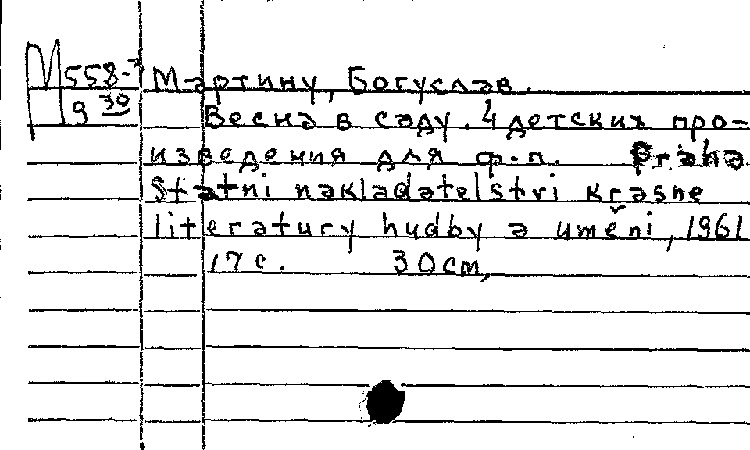 М 558-3 Мартину, Богуслав.
9 30 Весна в саду. 4 детских про-
изведения для ф.п. Praha
Statni nakladatelstvi krasne
literatury hudby a uměni, 1961
17 с. 30cm,